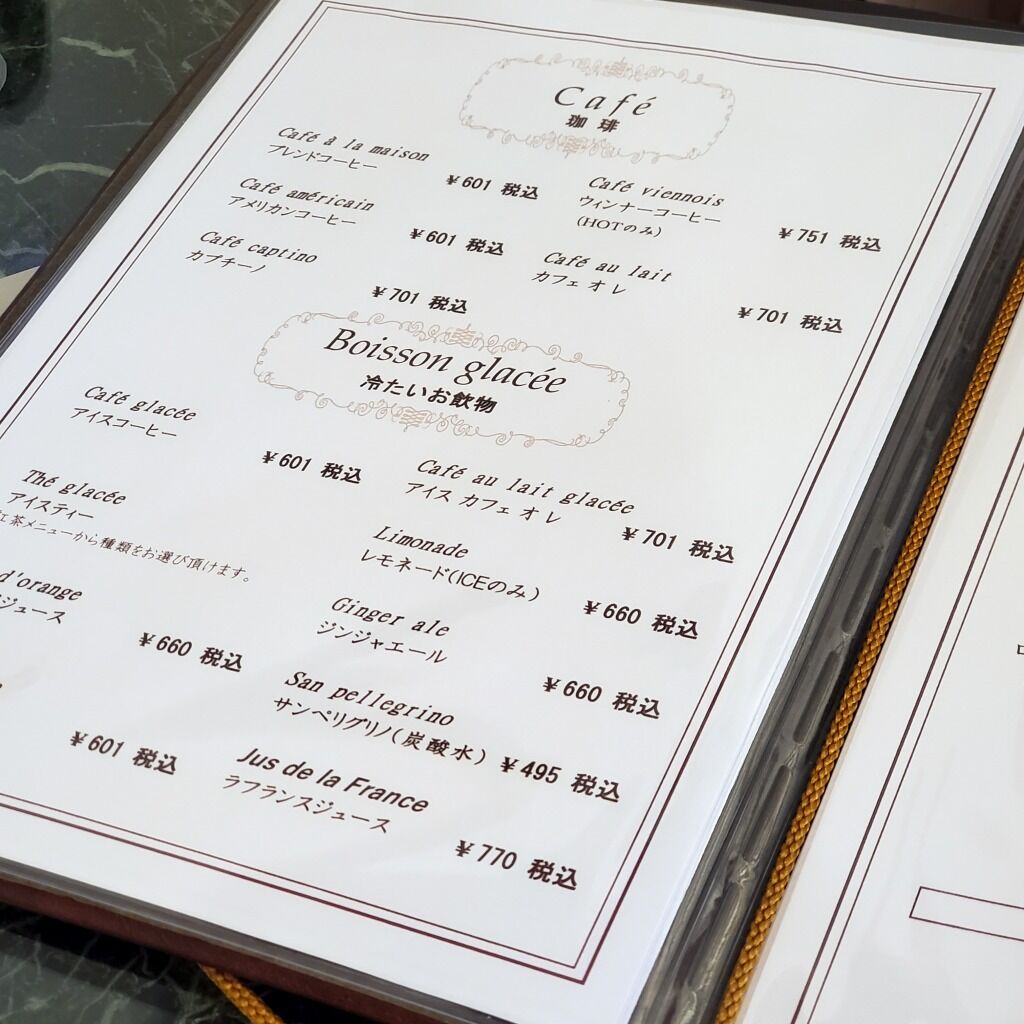 Café
珈琲
Café à la maison
ブレンドコーヒー
¥601 税込
Café américain
アメリカンコーヒー
¥601 税込
Café captino
カプチーノ
¥701 税込
Café viennois
ウィンナーコーヒー
(HOTのみ)
¥751 税込
Café au lait
カフェ オ レ
¥701 税込
Boisson glacée
冷たいお飲物
Café glacée
アイスコーヒー
¥601 税込
Thé glacée
アイスティー
紅茶メニューから種類をお選び頂けます。
d'orange
ジュース
¥660 税込
¥601 税込
Café au lait glacée
アイス カフェ オ レ
¥701 税込
Limonade
レモネード(ICEのみ)
¥660 税込
Ginger ale
ジンジャエール
¥660 税込
San pellegrino
サンペリグリノ(炭酸水) ¥495 税込
Jus de la France
ラフランスジュース
¥770 税込